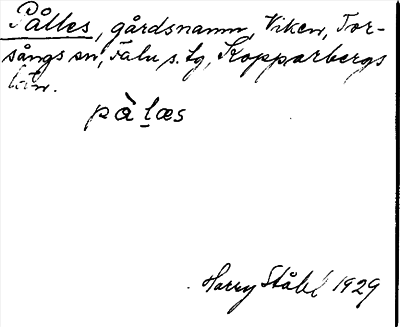 Pålles, gårdsnamn, Viken, Tor-
sångs sn, Falu s. lg, Kopparbergs
län.
pàlæs
Harry Ståhl 1929